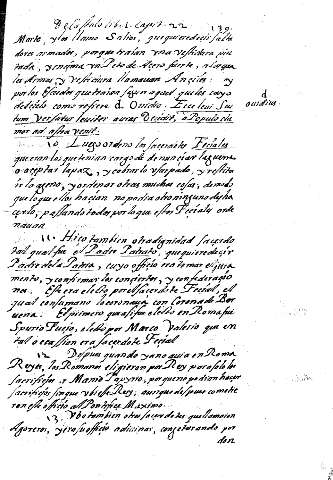 De Castulo lib. 1. capit. 22
139.
Marte, y les llamo Salios, que quiere decir salta
dores armados, porque traian una vestidura pin
tada, y encima un Peto de Azero fuerte, a las que
las Armas y vestidura llamavan y
por los Escudos que traian segun aquel que les cayo
del cielo como refiere d. Ovidio. Ecce levi Scu
tum versatum leniter auras Decidit, a Populo cla
mor ad astra venit.
d
ouidius.
10 Luego ordeno los sacerdotes Feciales
que eran los que tenian cargo de denunciar la guerra
o aceptar la paz, y cobrar lo usurpado, y restitu
ir lo ageno, y ordeno otras muchas cosas, de modo
que lo que ellos hacian no podia otro ninguno desha
cerlo, passando todo por lo que estos Feciales orde
navan.
11. Hizo tambien otra dignidad sacerdo
tal qual fue el Padre Patrato, que quiere decir
Padre de la Patria, cuyo officio era tomar el jura
mento, y confirmar los conciertos, y confederacio
nes. Este era electo por el sacerdote Fecial, el
qual consumano lo coronava con Corona de Ber
vena. El primero que assi fue electo en Roma fue
Spurio Fusio, electo por Marco Valerio que en
tal ocassion era sacerdote Fecial
12. Despues quando ya no avia en Roma
Reyes, los Romanos eligieron por Rey para solo los
sacrificios, a Manio Papyrio, porque no podian hacer
sacrificios sin que ubiesse Rey, aunque despues comete
ron este officio al Pontifice Maximo.
13. Ubo tambien otros sacerdotes que llamaron
Agoreros, y era su officio adivinar, conjeturando por
don